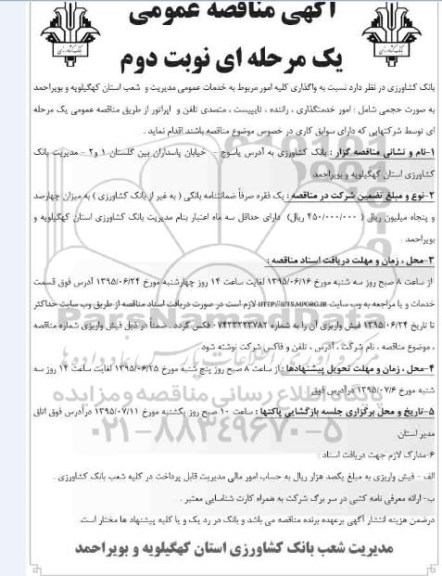 آگهی مناقصه عمومی
یک مرحله ای نوبت دوم
بانک کشاورزی در نظر دارد نسبت به واگذاری کلیه امور مربوط به خدمات عمومی مدیریت و شعب استان کهگیلویه و بویراحمد
به صورت حجمی شامل : امور خدمتگذاری ، راننده ، تایپیست ، متصدی تلفن و اپراتور از طریق مناقصه عمومی یک مرحله
ای توسط شرکتهایی که دارای سوابق کاری در خصوص موضوع مناقصه باشند اقدام نماید .
۱-نام و نشانی مناقصه گزار : بانک کشاورزی به آدرس یاسوج - خیابان پاسداران بین گلستان ۱ و۲ - مدیریت بانک
کشاورزی استان کهگیلویه و بویراحمد
۲-نوع و مبلغ تضمین شرکت در مناقصه : یک فقره صرفاً ضمانتنامه بانکی ( به غیر از بانک کشاورزی ) به میزان چهارصد
و پنجاه میلیون ریال ( ۴۵۰/۰۰۰/۰۰۰ ریال) دارای حداقل سه ماه اعتبار بنام مدیریت بانک کشاورزی استان کهگیلویه و
بویراحمد .
۳-محل ، زمان و مهلت دریافت اسناد مناقصه :
از ساعت ۸ صبح روز سه شنبه مورخ ۱۳۹۵/۰۶/۱۶ لغایت ساعت ۱۴ روز چهارشنبه مورخ ۱۳۹۵/۰۶/۲۴ آدرس فوق قسمت
خدمات و یا مراجعه به وب سایت HTTP://IETS.MPORG.IR لازم است در صورت دریافت اسناد مناقصه از طریق وب سایت حداکثر
تا تاریخ ۱۳۹۵/۰۶/۲۴ فیش واریزی آن را به شماره ۰۷۴۳۳۲۲۳۷۸۲ فکس گردد . ضمناً در ذیل فیش واریزی شماره مناقصه
، موضوع مناقصه ، نام شرکت ، آدرس ، تلفن و فاکس شرکت نوشته شود
۴-محل ، زمان و مهلت تحویل پیشنهادها : از ساعت ۸ صبح روز پنج شنبه مورخ ۱۳۹۵/۰۶/۲۵ لغایت ساعت ۱۴ روز سه
شنبه مورخ ۱۳۹۵/۰۷/۶ درآدرس فوق
۵-تاریخ و محل برگزاری جلسه بازگشایی پاکتها : ساعت ۱۰ صبح روز یکشنبه مورخ ۱۳۹۵/۰۷/۱۱ درآدرس فوق اتاق
مدیر استان.
۶-مدارک لازم جهت دریافت اسناد :
الف - فیش واریزی به مبلغ یکصد هزار ریال به حساب امور مالی مدیریت قابل پرداخت در کلیه شعب بانک کشاورزی .
ب- ارائه معرفی نامه کتبی در سر برگ شرکت به همراه کارت شناسایی معتبر .
درضمن هزینه انتشار آگهی برعهده برنده مناقصه می باشد و بانک در رد یک و یا کلیه پیشنهاد ها مختار است.
مدیریت شعب بانک کشاورزی استان کهگیلویه و بویراحمد
ParsNamadData
پایگاه اطلاع رسانی مناقصه و مزایده
۰۲۱-۸۸۳۴۹۶۷۰-۵